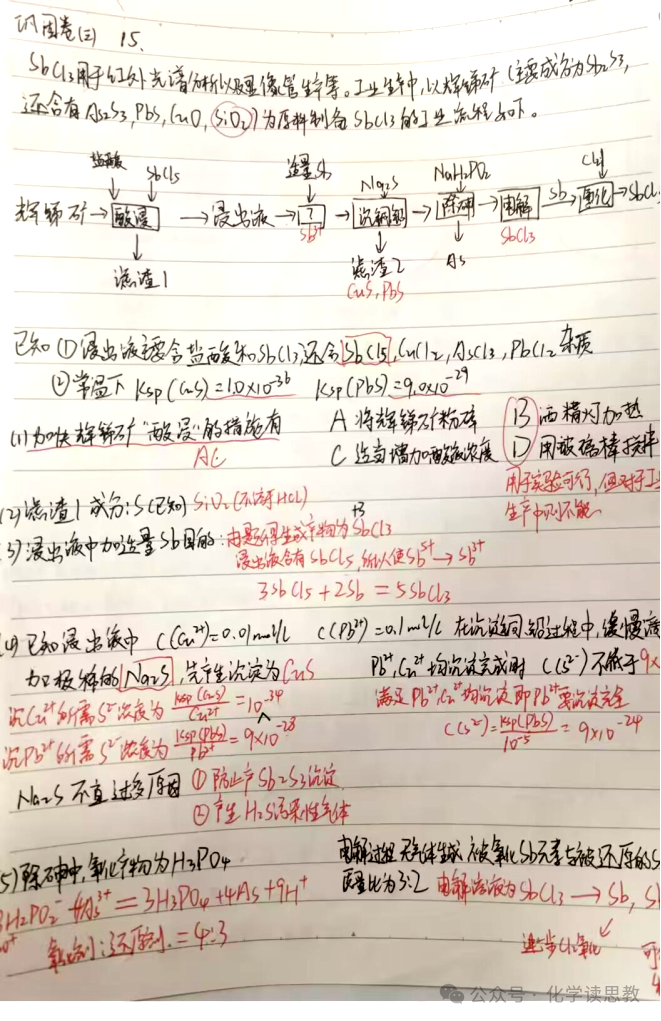 巩固卷(三) 15.
SbCl3用于红外光谱分析以及显像管生产等。工业生产中,以辉锑矿(主要成分为Sb2S3,
还含有As2S3,PbS,CuO,SiO2)为原料制备SbCl3的工业流程如下。
盐酸 SbCl5 适量Sb Na2S NaH2PO2 Cl2
辉锑矿→酸浸→浸出液→?→沉铜铅→除砷→电解 Sb 氯化→SbCl
Sb3+ SbCl3
滤渣1 滤渣2 As
CuS,PbS
已知 ①浸出液主要含盐酸和SbCl3还含SbCl5,CuCl2,AsCl3,PbCl2杂质
②常温下 Ksp(CuS)=1.0×10-36 Ksp(PbS)=9.0×10-29
(1)加快辉锑矿"酸浸"的措施有 A 将辉锑矿粉碎 B 酒精灯加热
AC C 适当增加酸液浓度 D 用玻璃棒搅拌
用于实验可行,但对于工
生产中则不能
(2)滤渣1成分:S(已知) SiO2(不溶于HCl)
3)浸出液中加适量Sb目的:由题得生成产物为SbCl3
+3
浸出液含有SbCl5,所以使Sb5+→Sb3+
3SbCl5+2Sb=5SbCl3
(4)已知浸出液中 C(Cu2+)=0.01mol/L C(Pb2+)=0.1mol/L 在沉淀铜铅过程中,缓慢滴
加极稀的Na2S,先产生沉淀为CuS Pb2+,Cu2+均沉淀完成时 C(S2-)不低于9×
沉Cu2+所需S2-浓度为 Ksp(CuS)/Cu2+=10-34 满足Pb2+,Cu2+均沉淀即Pb2+要沉淀完全
∧
沉Pb2+所需S2-浓度为 Ksp(PbS)/Pb2+=9×10-28 C(S2-)=Ksp(PbS)/10-5=9×10-24
Na2S不宜过多原因 ①防止产Sb2S3沉淀
②产生H2S污染性气体
5)除砷中,氧化产物为H3PO4 电解过程无气体生成,被氧化Sb元素与被还原的S
3H2PO2- 4As3+=3H3PO4+4As+9H+ 质量比为3:2 电解溶液为SbCl3→Sb,S
氧化剂:还原剂=4:3 进一步Cl2氧化 可
公众号·化学读思教